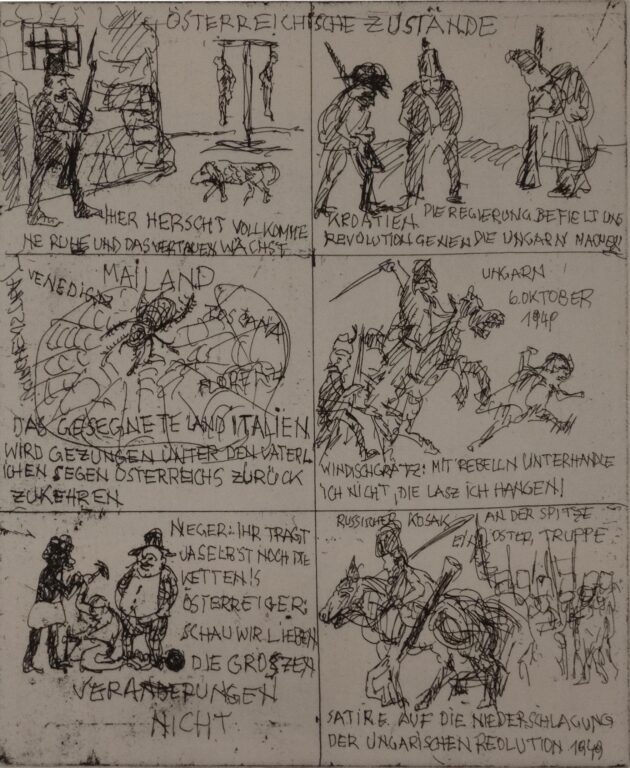 ÖSTERREICHISCHE ZUSTÄNDE
HIER HERSCHT VOLLKOMME
NE RUHE UND DAS VERTAUEN WÄCHST
KROATIEN DIE REGIERUNG BEFIELT UNS
REVOLUTION GENEN DIE UNGARN MACHEN
VENEDIGN
MAILAND
TOSCANA
FLORENZ
DAS GESEGNETE LAND ITALIEN
WIRD GEZUNGEN UNTER DEN VATERL
ICHEN SEGEN ÖSTERREICHS ZURÜCK
ZUKEHREN
UNGARN
6. OKTOBER
1949
WINDISCHGRÄTZ: MIT REBELLN UNTERHANDLE
ICH NICHT, DIE LASZ ICH HANGEN!
NEGER: IHR TRAGT
JA SELBST NOCH DIE
KETTEN!
ÖSTERREIGER:
SCHAU WIR LIEBEN
DIE GROSZEN
VERANDERUNGEN
NICHT
RUSSISCHER KOSAK AN DER SPITZE
EIN OSTER, TRUPPE
SATIRE AUF DIE NIEDERSCHLAGUNG
DER UNGARISCHEN REOLUTION 1949